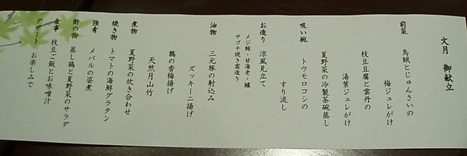 文月 御献立
前菜 烏賊とじゅんさいの
梅ジュレがけ
枝豆豆腐と雲丹の
湯葉ジュレがけ
夏野菜の冷製茶碗蒸し
吸い椀 トウモロコシの
すり流し
お造り 涼風見立て
メジ鮪・甘海老・鱧
サゴチ焼き霜造り
油物 三元豚の射込み
ズッキーニ揚げ
鶏の香梅揚げ
天然月山竹
煮物 夏野菜の炊き合わせ
焼き物 トマトの海鮮グラタン
強肴 メバルの姿煮
酢の物 蒸し鶏と夏野菜のサラダ
食事 枝豆ご飯とお味噌汁
デザート お楽しみで